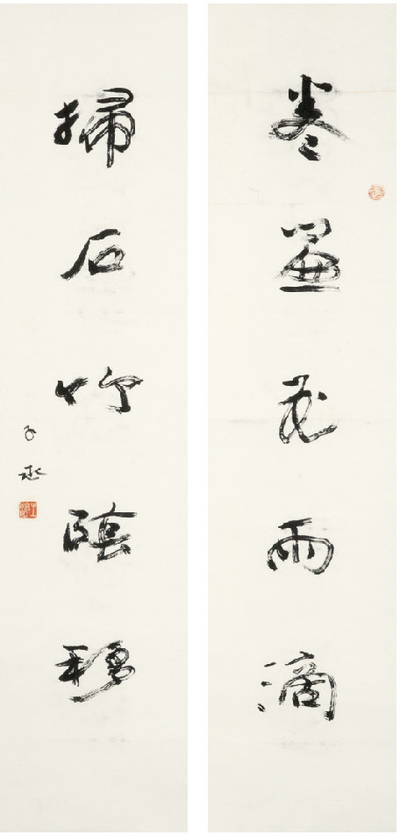 卷簾花雨滴
掃石竹陰移
子